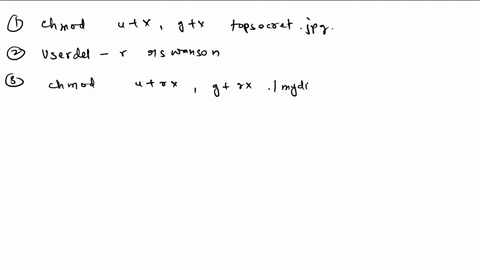 ① chmod u+x, g+x topsocret.jpg.
② Userdel - r rswanson
③ chmod u+rx, g+rx ./mydi